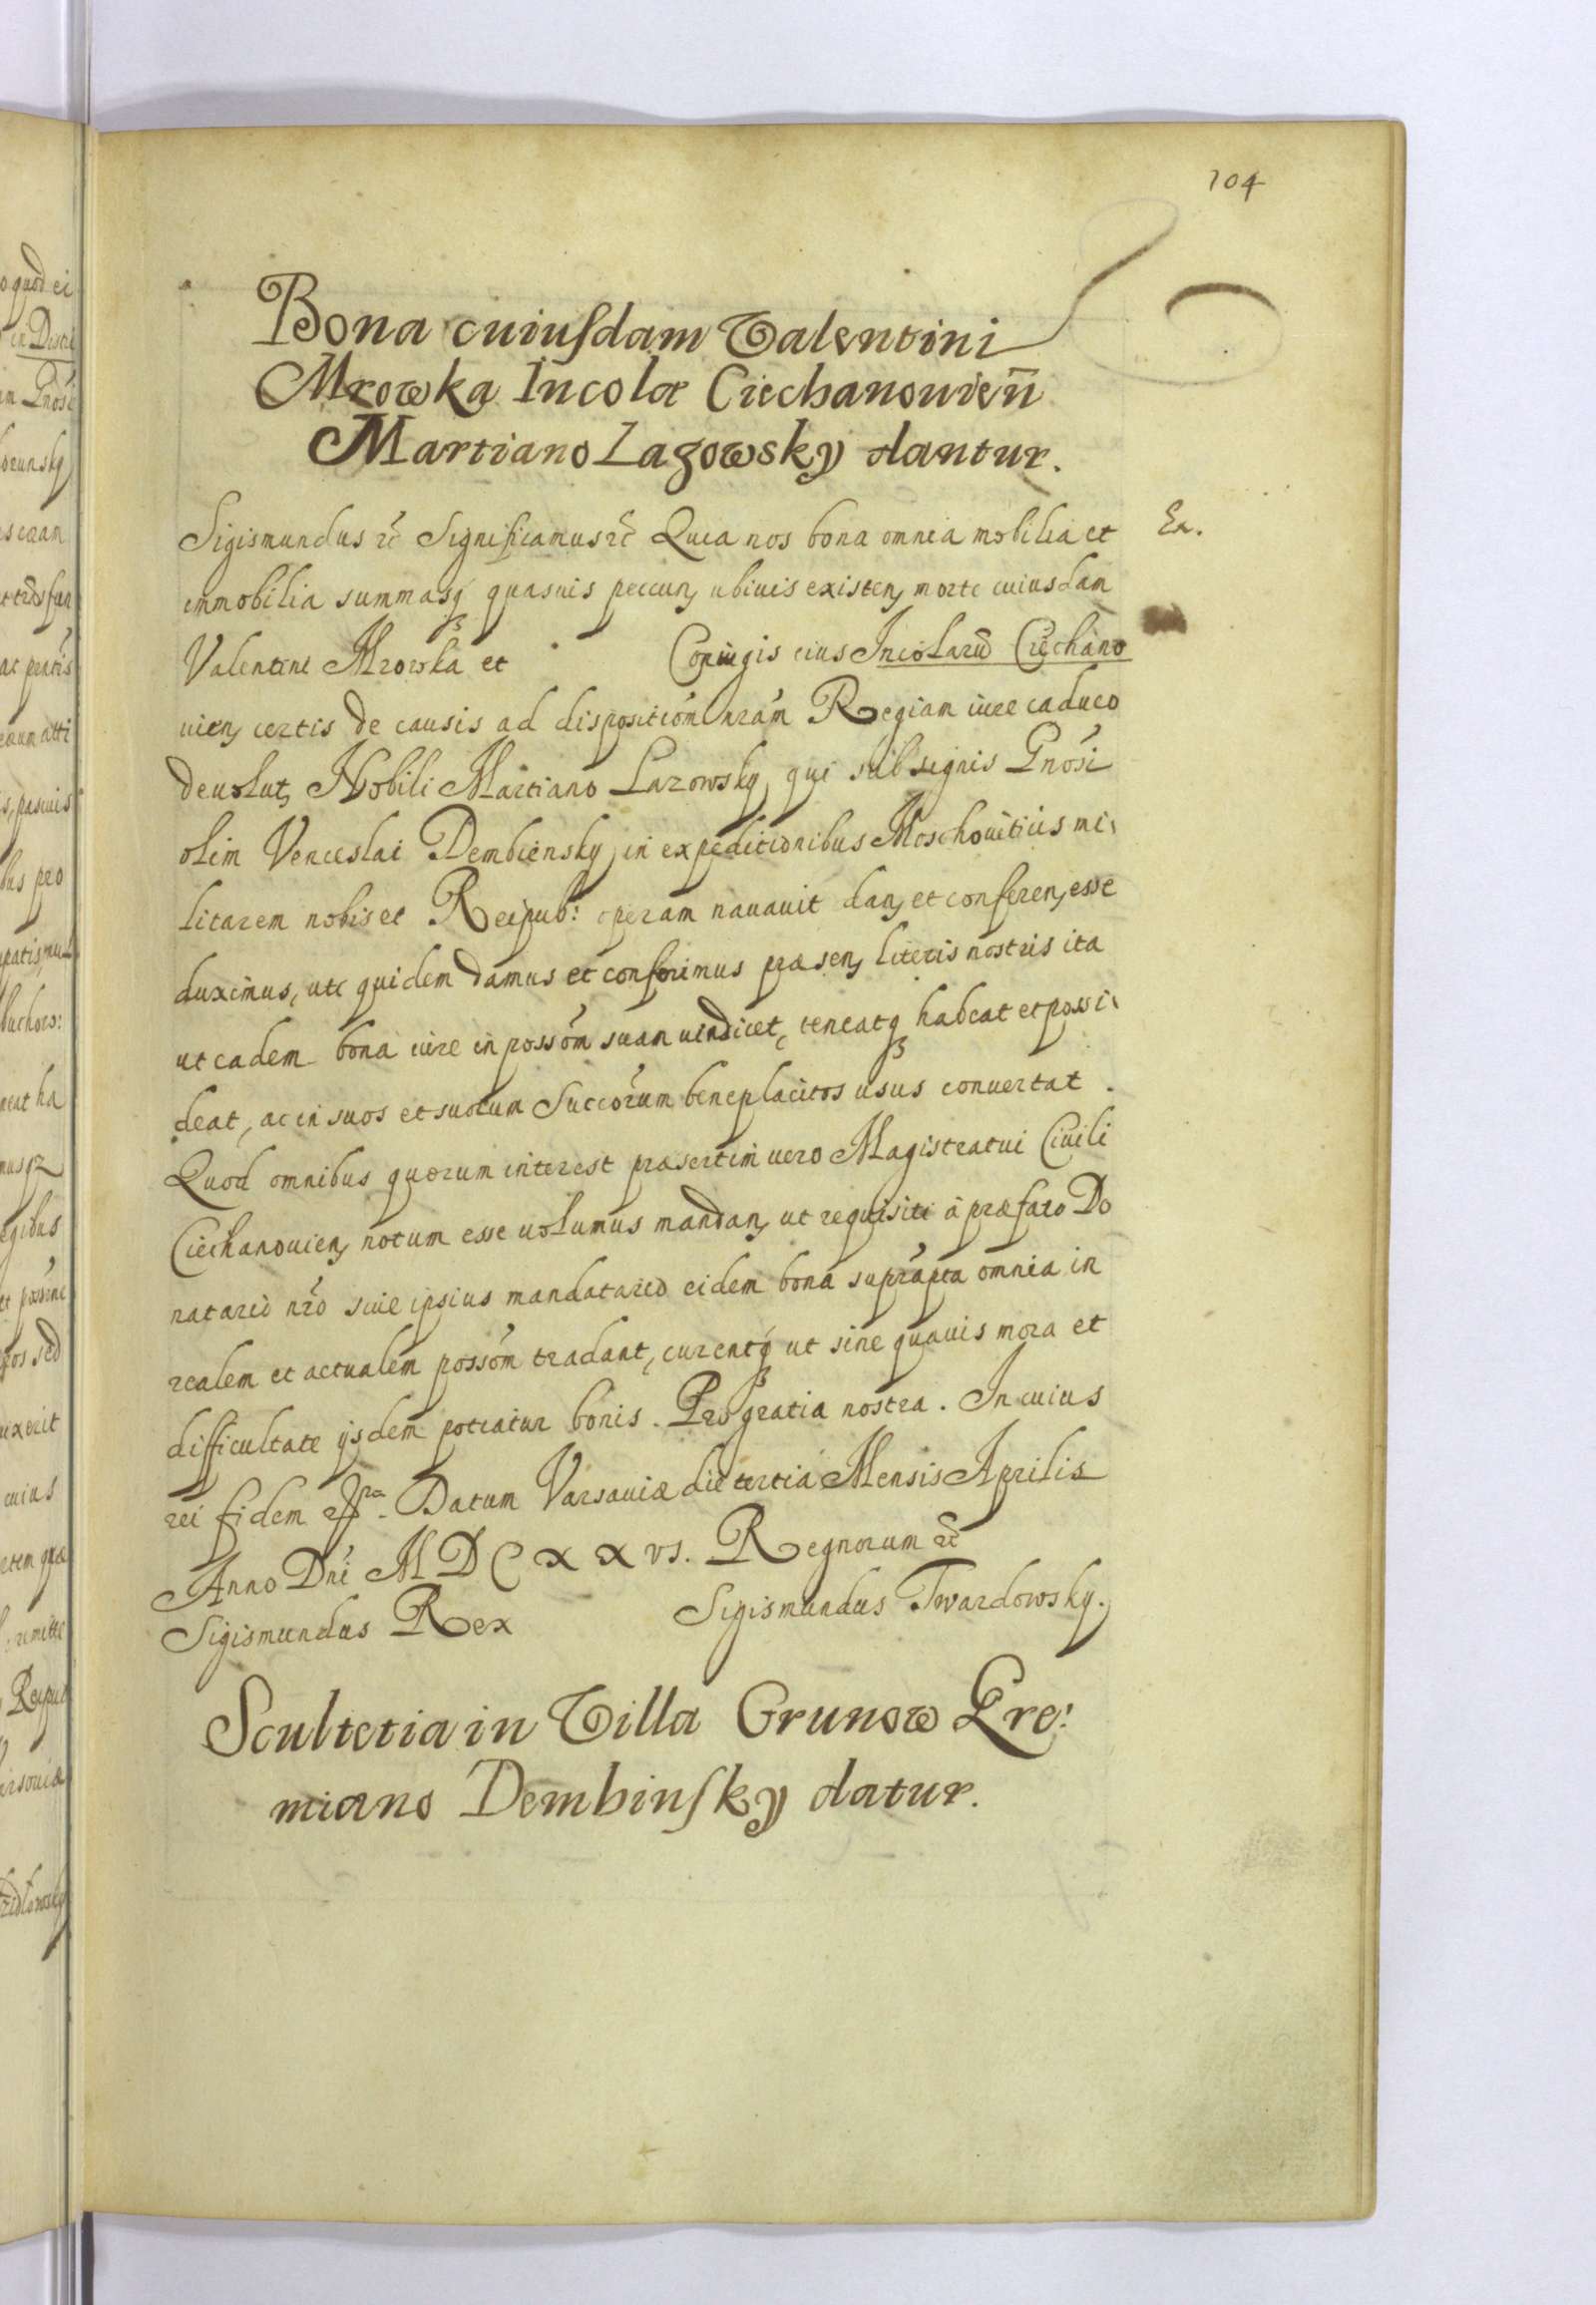 104
Bona cuiusdam Valentini
Mrowka Incolæ Ciechanouien̄
Martiano Lazowsky dantur.
Sigismundus etc̃ Significamus etc̃ Quia nos bona omnia mobilia et
Ex.
immobilia summasq́ꝫ quasuis peccun, ubiuis existen, morte cuiusdam
Valentini Mrowka et Coniugis eius Incolarū Ciechano
uien, certis de causis ad dispositiom̃ nram̃ Regiam iure caduco
deuolut, Nobili Martiano Lazowsky, qui sub signis Gnosi
olim Venceslai Dembiensky, in expeditionibus Moschouiticis mi
litarem nobis et Reipub: operam nauauit dan, et conferen, esse
duximus, uti quidem damus et conferimus præsen, literis nostris ita
ut eadem bona iure in possom̃ suam uendicet, teneatqꝫ habeat et possi
deat, ac in suos et suorum Succorum̃ beneplacitos usus conuertat.
Quod omnibus quorum interest præsertim uero Magistratui Ciuili
Ciechanouien, notum esse uolumus mandan, ut requisiti à præfato Do
natario nr̃o siue ipsius mandatario eidem bona suprapta omnia in
realem et actualem possom̃ tradant, curentq́ꝫ ut sine quauis mora et
difficultate ijsdem potiatur bonis. Pro gratia nostra. In cuius
rei fidem etc. Datum Varsauiæ die tertia Mensis Aprilis
Anno Dni MDCXXVI. Regnorum etc̃
Sigismundus Rex Sigismundus Twardowsky.
Scultetia in Villa Grunow Pre:
miano Dembinsky datur.